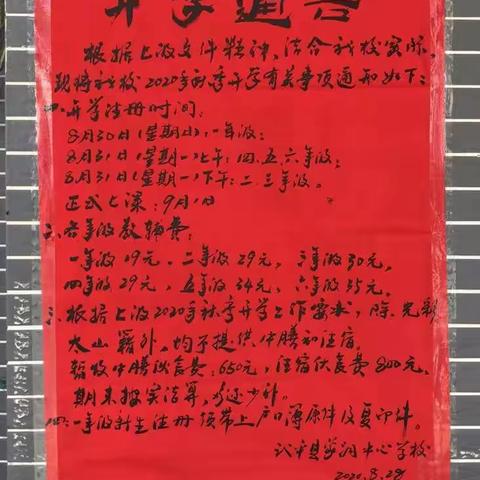 开学通告
根据上级文件精神，结合我校实际，
现将我校2020年秋季开学有关事项通知如下：
一、开学注册时间：
8月30日（星期日）：一年级；
8月31日（星期一）上午：四、五、六年级；
8月31日（星期一）下午：二、三年级。
正式上课：9月1日
二、各年级教辅费：
一年级19元，二年级29元，三年级30元，
四年级29元，五年级34元，六年级35元。
三、根据上级2020年秋季开学工作要求，除
太山籍外，均不提供中膳和住宿。
暂收中膳伙食费：650元，住宿伙食费800元，
期末按实结算，多还少补。
四、一年级新生注册须带上户口簿原件及复印件。
中心学校
2020.8.28